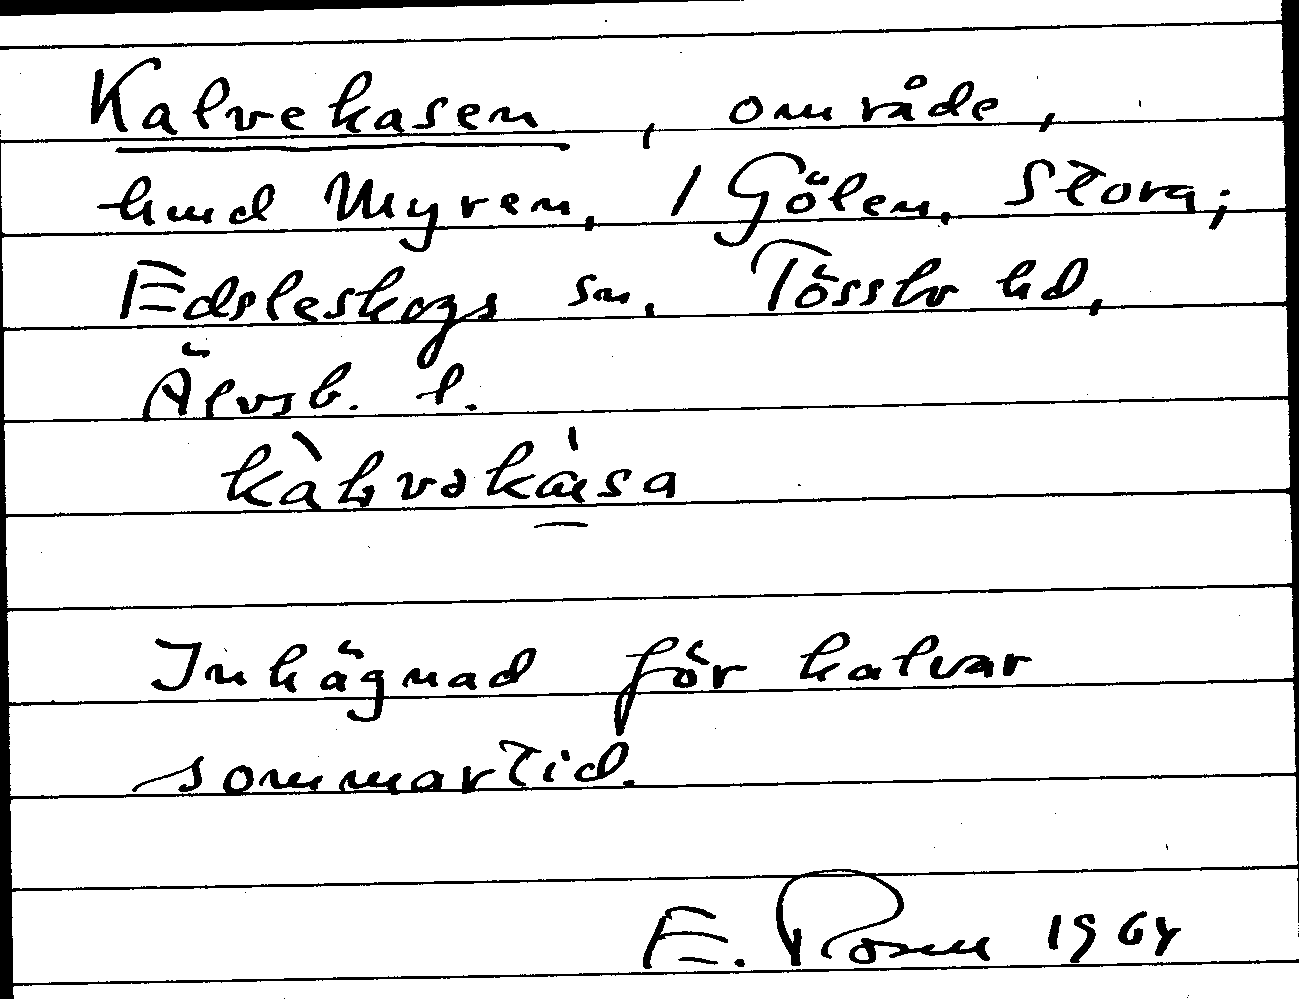 Kalvekasen, område,
hmd Myren, 1 Gölen, Stora;
Edsleskogs sn, Tössbo hd,
Älvsb. l.
kàḷvəkása
Inhägnad för kalvar
sommartid.
E. Rosén 1964